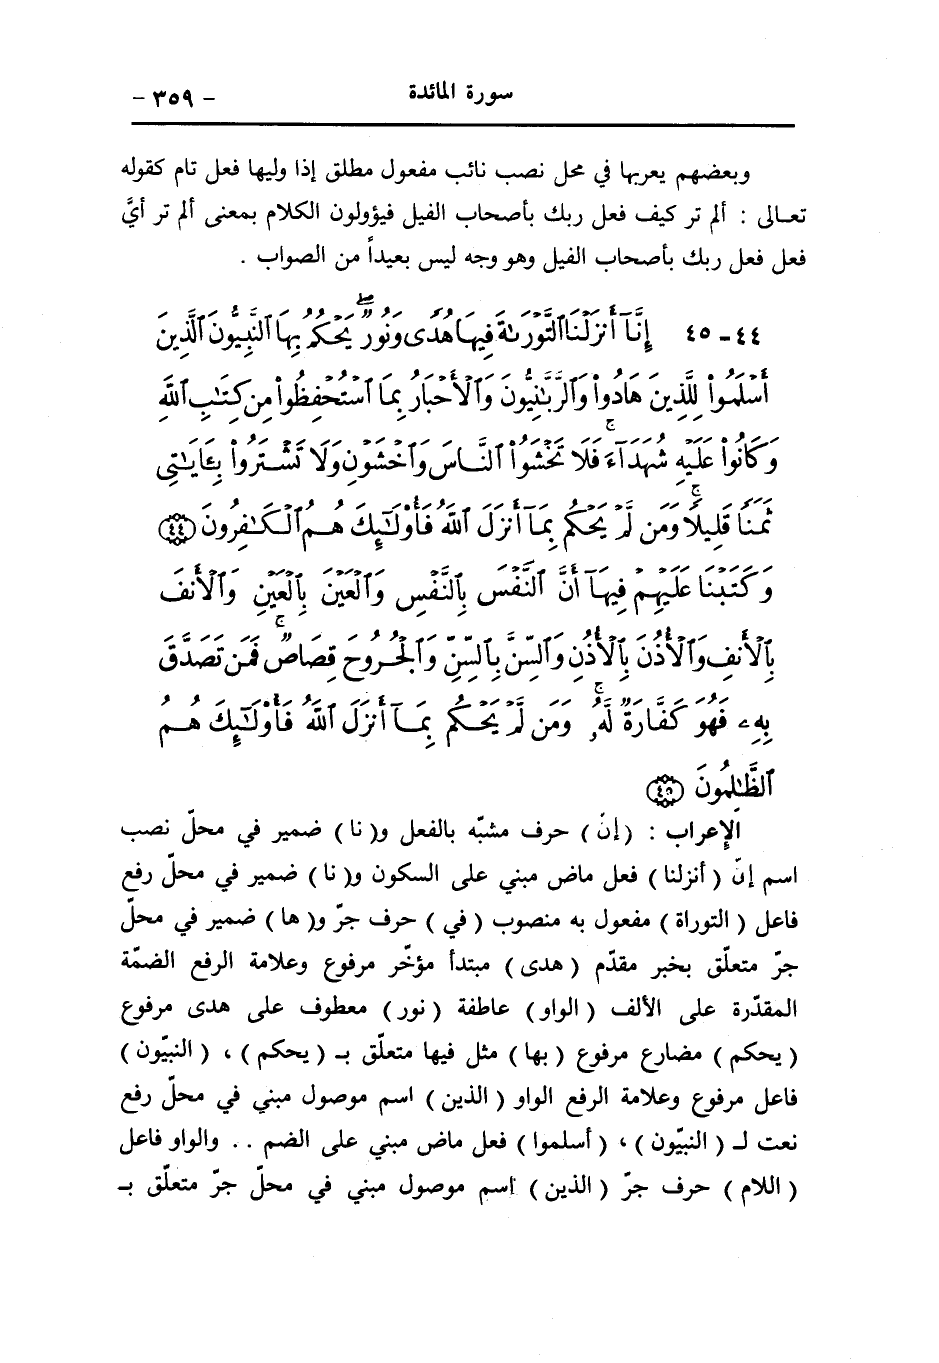 سورة المائدة - ٣٥٩ -
وبعضهم يعربها في محل نصب نائب مفعول مطلق إذا وليها فعل تام كقوله
تعـالى : ألم تر كيف فعل ربك بأصحاب الفيل فيؤولون الكلام بمعنى ألم تر أيَّ
فعل فعل ربك بأصحاب الفيل وهو وجه ليس بعيداً من الصواب .
٤٤ - ٤٥ إِنَّآ أَنزَلْنَا ٱلتَّوْرَىٰةَ فِيهَا هُدًى وَنُورٌ ۖ يَحْكُمُ بِهَا ٱلنَّبِيُّونَ ٱلَّذِينَ
أَسْلَمُوا۟ لِلَّذِينَ هَادُوا۟ وَٱلرَّبَّٰنِيُّونَ وَٱلْأَحْبَارُ بِمَا ٱسْتُحْفِظُوا۟ مِن كِتَٰبِ ٱللَّهِ
وَكَانُوا۟ عَلَيْهِ شُهَدَآءَ ۚ فَلَا تَخْشَوُا۟ ٱلنَّاسَ وَٱخْشَوْنِ وَلَا تَشْتَرُوا۟ بِـَٔايَٰتِى
ثَمَنًا قَلِيلًا ۚ وَمَن لَّمْ يَحْكُم بِمَآ أَنزَلَ ٱللَّهُ فَأُو۟لَٰٓئِكَ هُمُ ٱلْكَٰفِرُونَ ﴿٤٤﴾
وَكَتَبْنَا عَلَيْهِمْ فِيهَآ أَنَّ ٱلنَّفْسَ بِٱلنَّفْسِ وَٱلْعَيْنَ بِٱلْعَيْنِ وَٱلْأَنفَ
بِٱلْأَنفِ وَٱلْأُذُنَ بِٱلْأُذُنِ وَٱلسِّنَّ بِٱلسِّنِّ وَٱلْجُرُوحَ قِصَاصٌ ۚ فَمَن تَصَدَّقَ
بِهِۦ فَهُوَ كَفَّارَةٌ لَّهُۥ ۚ وَمَن لَّمْ يَحْكُم بِمَآ أَنزَلَ ٱللَّهُ فَأُو۟لَٰٓئِكَ هُمُ
ٱلظَّٰلِمُونَ ﴿٤٥﴾
الإعراب : ( إنّ ) حرف مشبّه بالفعل و( نا ) ضمير في محلّ نصب
اسم إنّ ( أنزلنا ) فعل ماض مبني على السكون و( نا ) ضمير في محلّ رفع
فاعل ( التوراة ) مفعول به منصوب ( في ) حرف جرّ و( ها ) ضمير في محلّ
جرّ متعلّق بخبر مقدّم ( هدى ) مبتدأ مؤخّر مرفوع وعلامة الرفع الضمّة
المقدّرة على الألف ( الواو ) عاطفة ( نور ) معطوف على هدى مرفوع
( يحكم ) مضارع مرفوع ( بها ) مثل فيها متعلّق بـ ( يحكم ) ، ( النبيّون )
فاعل مرفوع وعلامة الرفع الواو ( الذين ) اسم موصول مبني في محلّ رفع
نعت لـ ( النبيّون ) ، ( أسلموا ) فعل ماض مبني على الضم . . والواو فاعل
( اللام ) حرف جرّ ( الذين ) اسم موصول مبني في محلّ جرّ متعلّق بـ